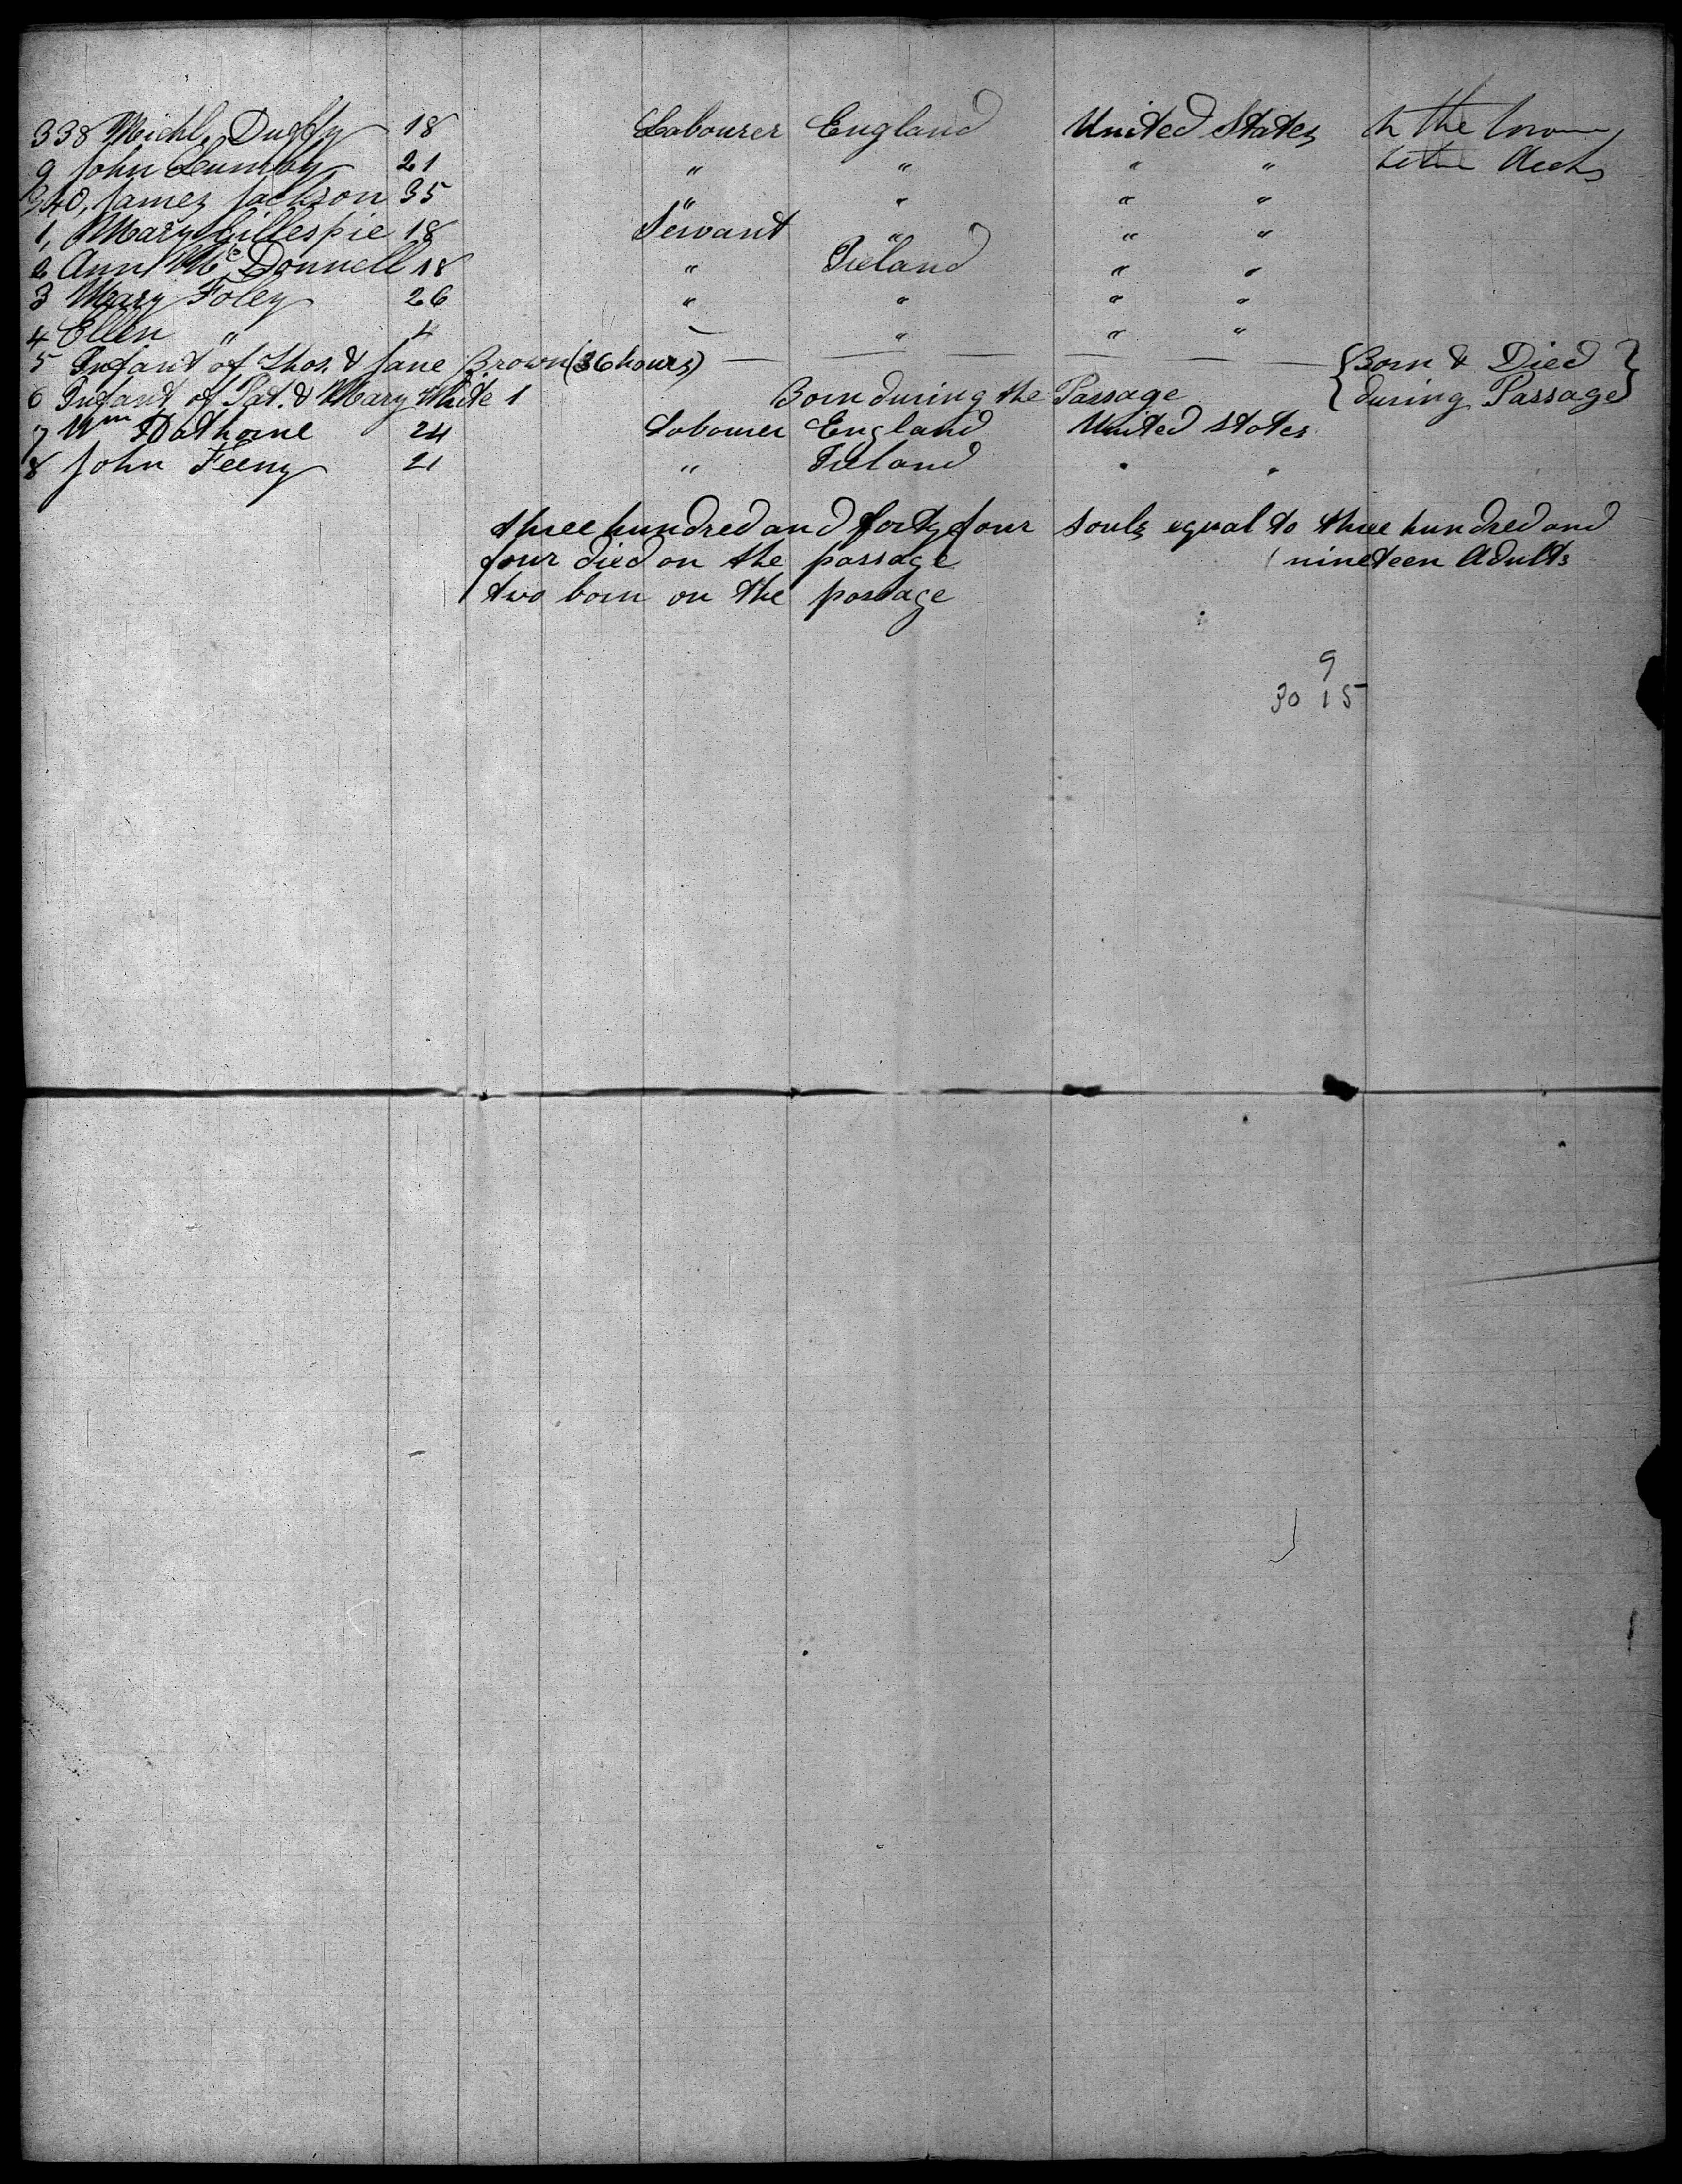 338 Michl. Duffy 18 Labourer England United States to the
9 John Lumby 21 " " " "
340, James Jackson 35 " " " "
1, Mary Gillespie 18 Servant " " "
2 Ann Mc Donnell 18 " Ireland " "
3 Mary Foley 26 " " " "
4 Ellen " 4 — " " "
5 Infant of Thos. & Jane Brown (36 hours) — — — — — {Born & Died
6 Infant of Pat. & Mary White 1 Born during the Passage during Passage}
7 Wm 24 Labourer England United States
8 John Feeny 21 " Ireland " "
three hundred and forty four souls equal to three hundred and
four died on the passage ( nineteen Adults
two born on the passage
9
30 15